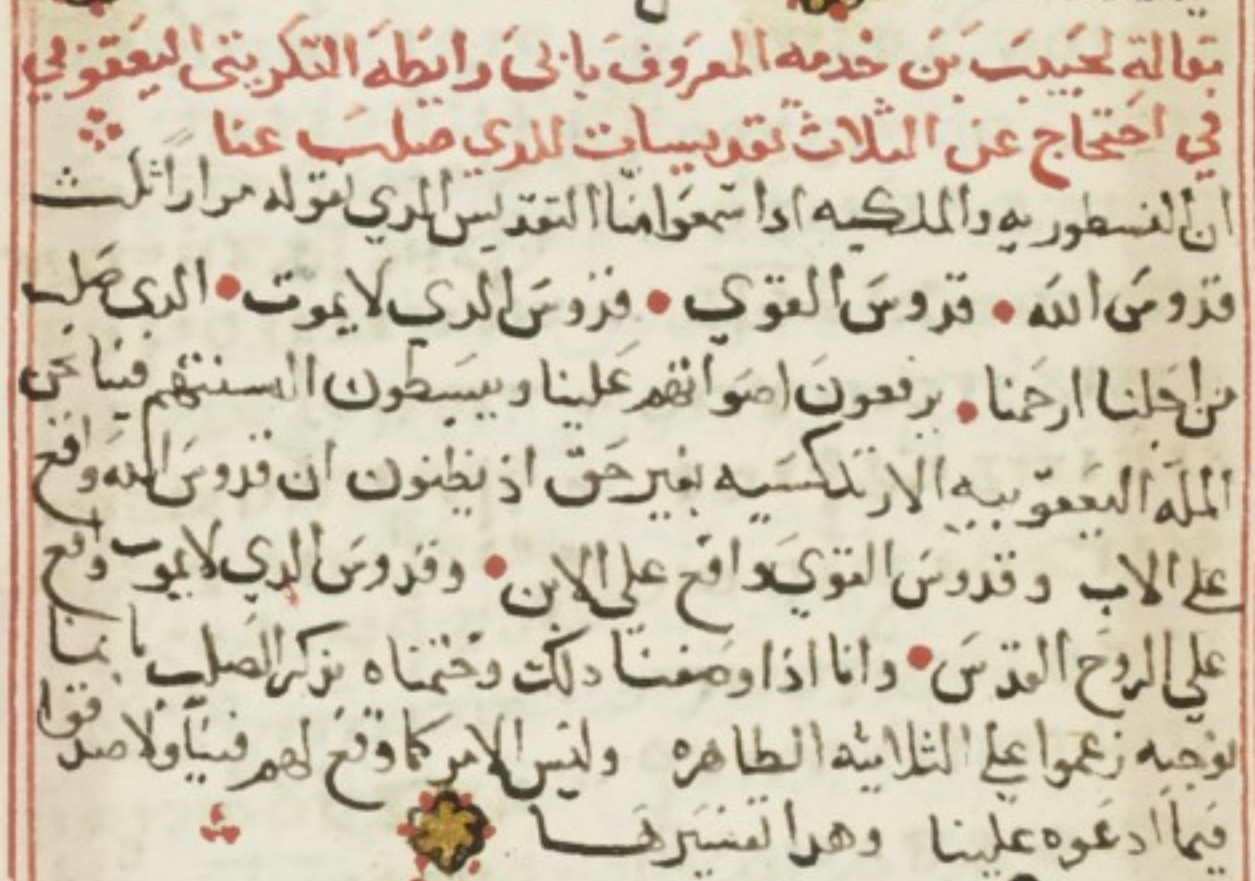 مقالة لحبيب بن خدمه المعروف بابي رايطه التكريتي اليعقوبي
في احتجاج عن الثلاث تقديسات للدي صلب عنا
ان النسطوريه والملكيه اداسمعوا منا التقديس الدي نقوله مرارا ثلث
قدوس الله • قدوس القوي • قدوس الدي لا يموت • الدي صلب
من اجلنا ارحمنا • يرفعون اصواتهم علينا ويبسطون السنتهم فينا نحن
المله اليعقوبيه الارتدكسيه بغير حق اذ يظنون ان قدوس الله واقع
علي الاب وقدوس القوي واقع علي الابن • وقدوس الدي لا يموت واقع
علي الروح القدس • وانا اذا وصفنا دلك وختمناه بذكر الصلب
نوجبه زعموا علي الثلاثيه الطاهره وليس الامر كما وقع لهم فينا ولا صدقوا
فيما ادعوه علينا وهدا تفسيرها